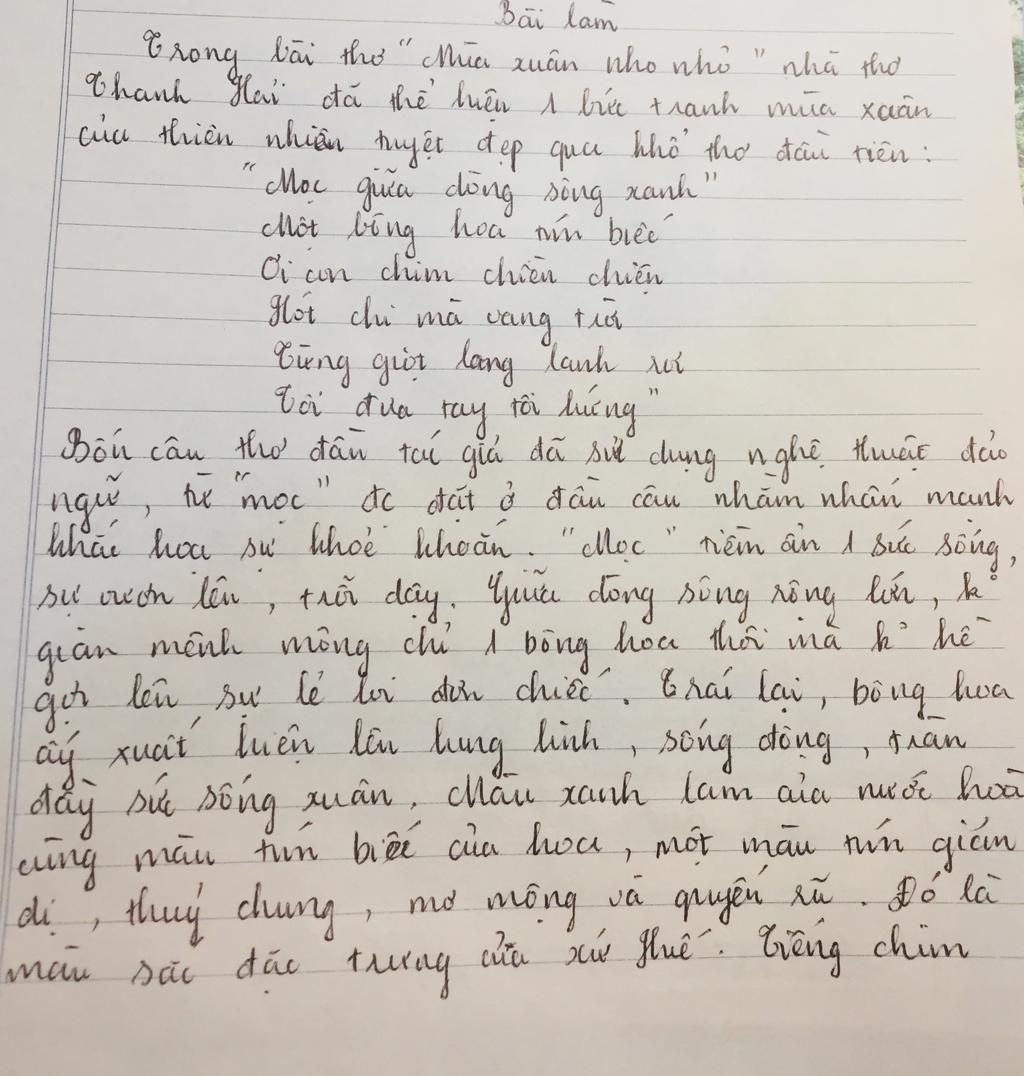 Bài làm
Trong bài thơ "Mùa xuân nho nhỏ" nhà thơ
Thanh Hải đã thể hiện 1 bức tranh mùa xuân
của thiên nhiên tuyệt đẹp qua khổ thơ đầu tiên:
"Mọc giữa dòng sông xanh"
Một bông hoa tím biếc
Ơi con chim chiền chiện
Hót chi mà vang trời
Từng giọt long lanh rơi
Tôi đưa tay tôi hứng"
Bốn câu thơ đầu tác giả đã sử dụng nghệ thuật đảo
ngữ, từ "mọc" đc đặt ở đầu câu nhằm nhấn mạnh
khắc họa sự khoẻ khoắn. "Mọc" tiềm ẩn 1 sức sống,
sự vươn lên, trỗi dậy. Giữa dòng sông rộng lớn, k°
gian mênh mông chỉ 1 bông hoa thôi mà k° hề
gợi lên sự lẻ loi đơn chiếc. Trái lại, bông hoa
ấy xuất hiện lên lung linh, sống động, tràn
đầy sức sống xuân. Màu xanh lam của nước hoà
cùng màu tím biếc của hoa, một màu tím giản
dị, thuỷ chung, mơ mộng và quyến rũ. Đó là
màu sắc đặc trưng của xứ Huế. Tiếng chim